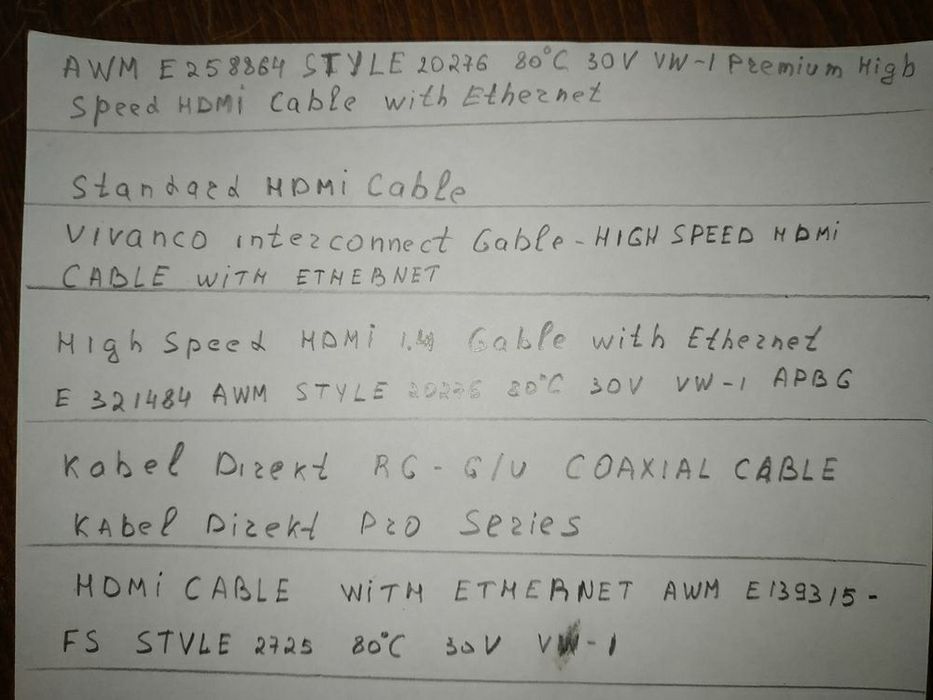 AWM E 258864 STYLE 20276 80°C 30V VW-1 Premium High
Speed HDMi Cable with Ethernet
Standard HDMi Cable
Vivanco interconnect Cable - HIGH SPEED HDMi
CABLE WiTH ETHERNET
High Speed HDMi 1.4 Cable with Ethernet
E 321484 AWM STYLE 20276 80°C 30V VW-1 APBG
Kabel Direkt RG-6/U COAXIAL CABLE
KAbel Direkt Pro Series
HDMi CABLE WiTH ETHERNET AWM E139315-
FS STYLE 2725 80°C 30V VW-1